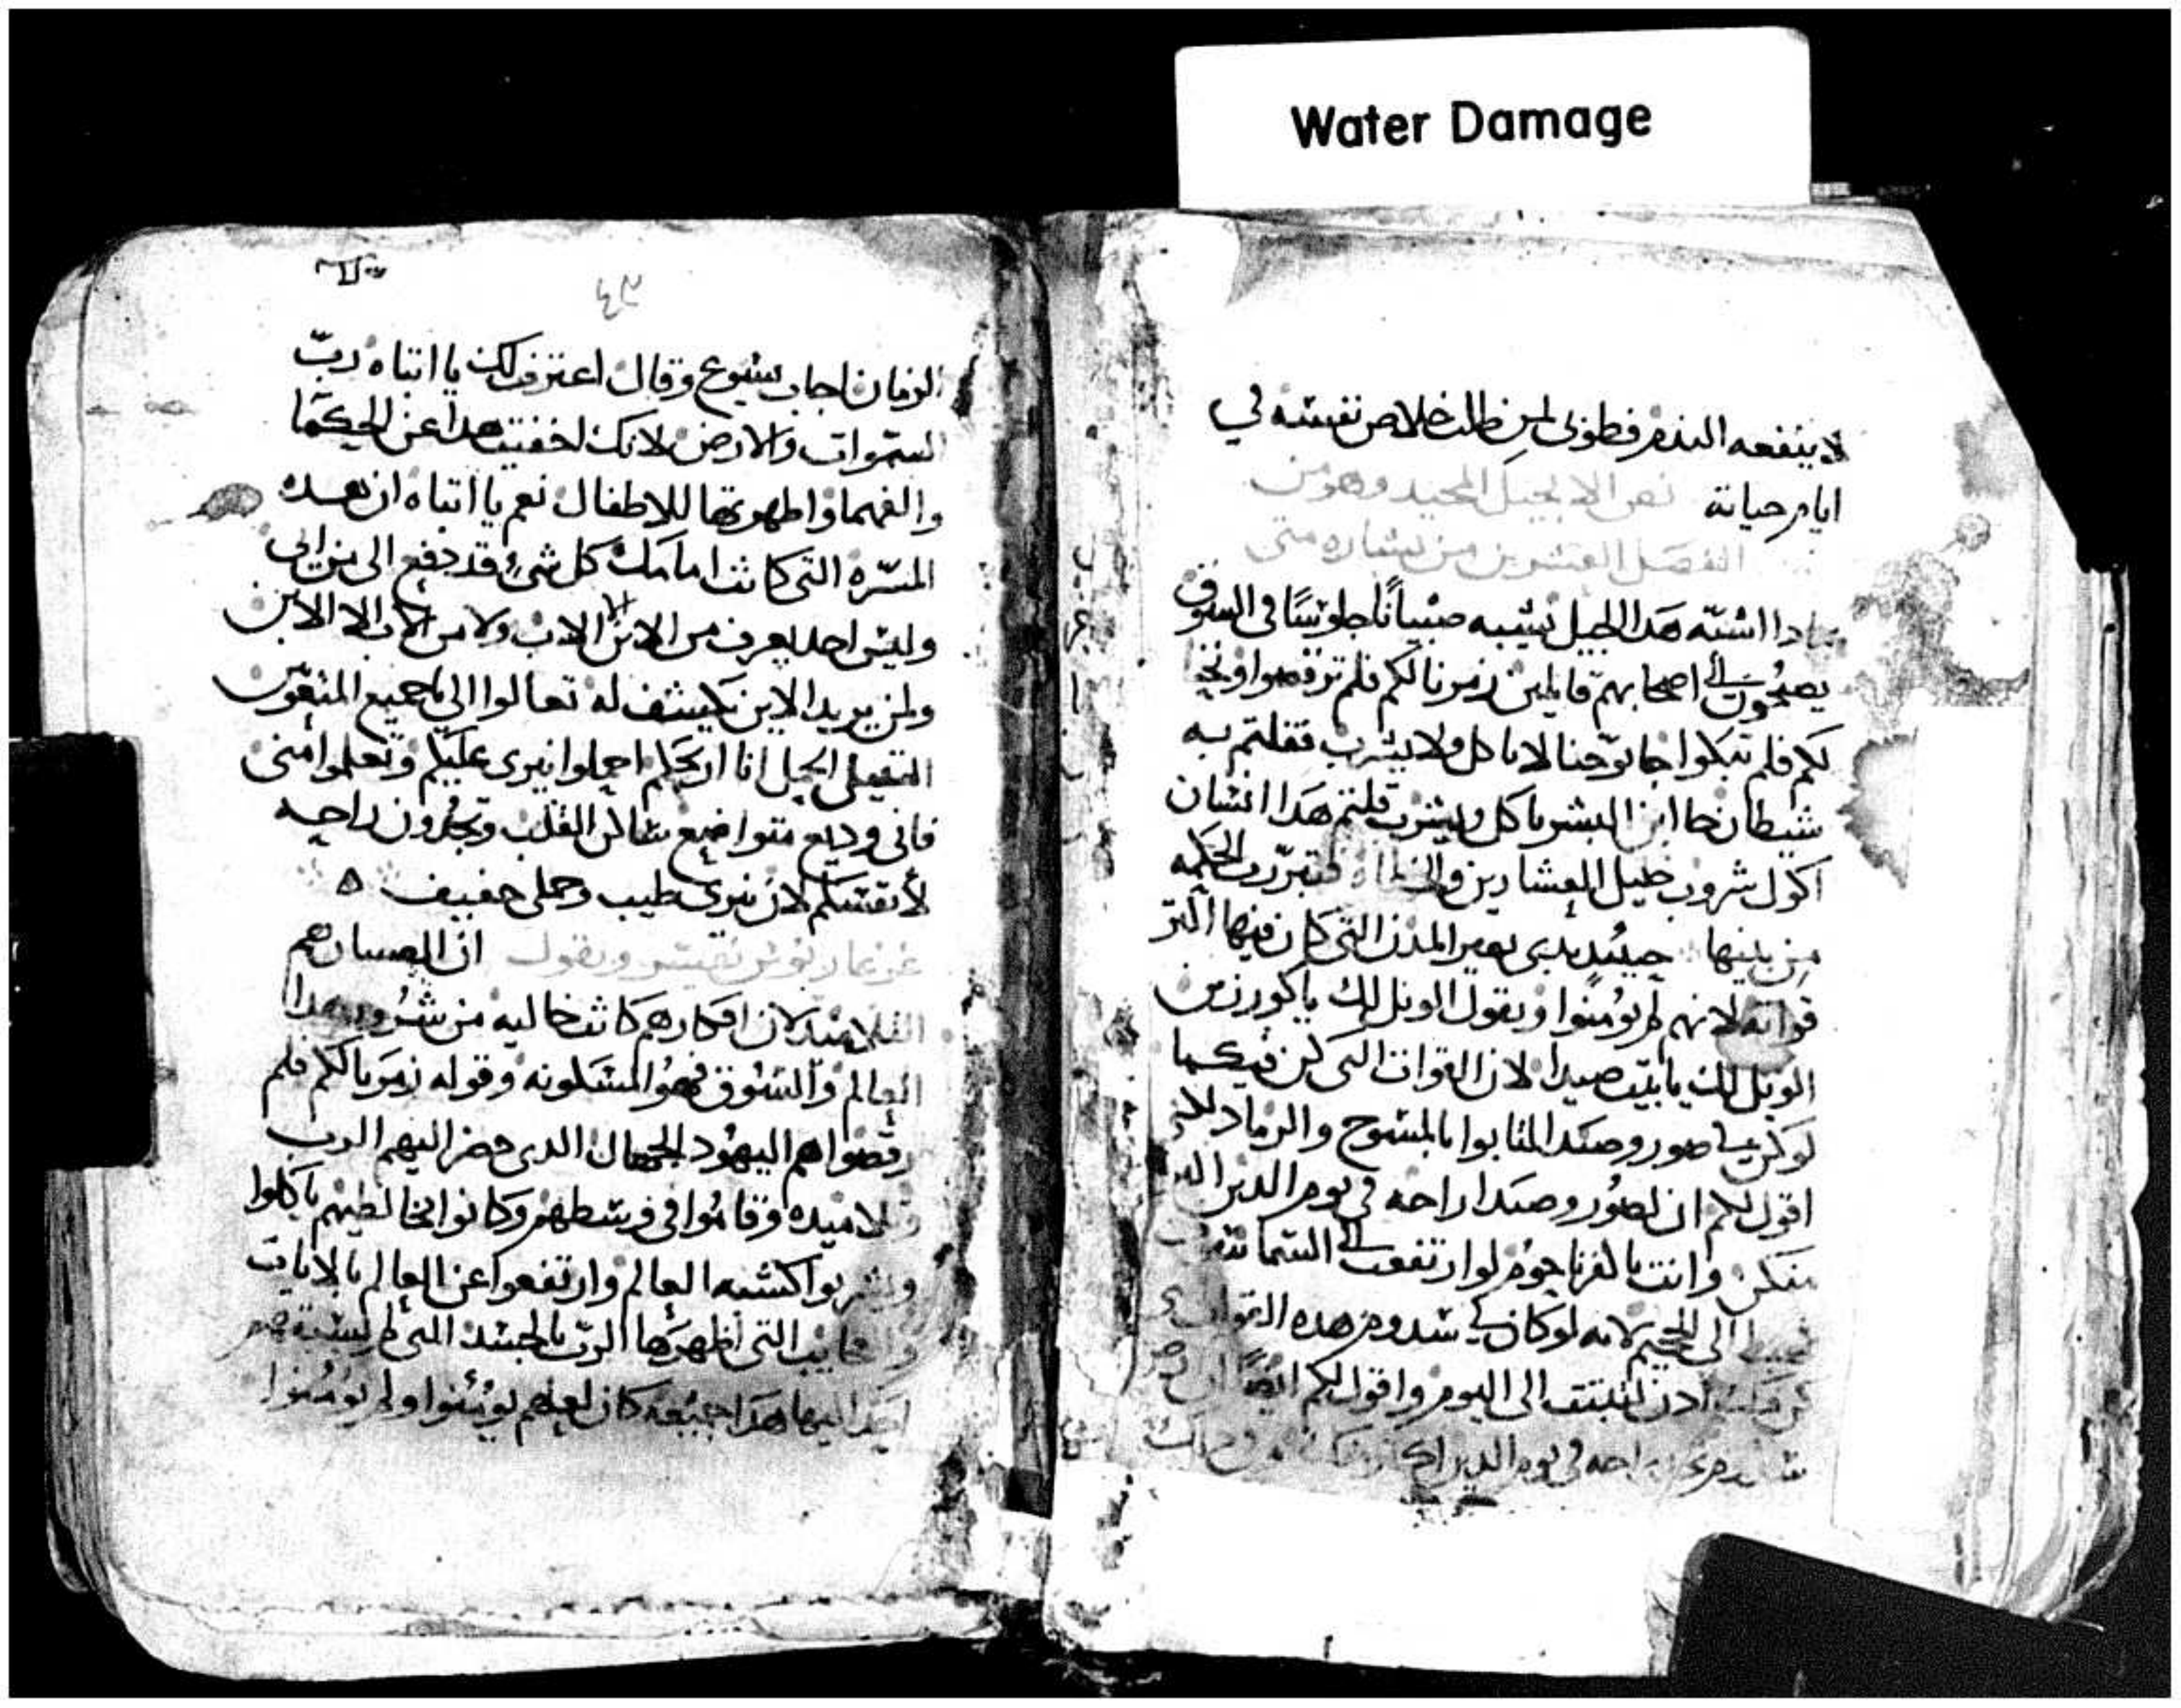 Water Damage
لا ينفعه الندم فطوبى لمن طلب خلاص نفسه في
ايام حياته نص الانجيل المجيد وهو من
الفصل العشرين من بشاره متى
بمادا اشبّه هدا الجيل يشبه صبياناً جلوسًا فى السوق
يصيحون الى اصحابهم قايلين زمرنا لكم فلم ترقصوا ونحنا
لكم فلم تبكوا جا يوحنا لا ياكل ولا يشرب فقلتم به
شيطان جا ابن البشر ياكل ويشرب قلتم هدا انسان
اكول شروب خليل العشارين والخطاه فتبرّرت الحكمه
من بنيها حينيد بدى يعير المدن التى كان فيها اكثر
قواته لانهم لم يومنوا ويقول الويل لك ياكورزين
الويل لك يابيت صيدا لان القوات التى كن فيكما
لو كن فى صور وصيدا لتابوا بالمسوح والرماد لكنى
اقول لكم ان لصور وصيدا راحه في يوم الدين اكثر
منكن وانت ياكفرناحوم لو ارتفعت الى السما
الى الجحيم لانه لو كان فى سدوم هده القوات
ادن لثبتت الى اليوم واقول لكم ايضاً ان ارض
سدوم راحه فى يوم الدين اكثر
٤٣
الزمان اجاب يسوع وقال اعترف لك يا ابتاه ربّ
السموات والارض لانك اخفيت هدا عن الحكما
والفهما واظهرتها للاطفال نعم يا ابتاه ان هده
المسرّه التى كانت امامك كل شي قد دفع الى من ابى
وليس احد يعرف من الابن الا الاب ولا من الاب الا الابن
ولمن يريد الابن يكشف له تعالوا الي ياجميع المتعوبين
الثقيلى الحمل انا اريحكم احملوا نيرى عليكم وتعلموا منى
فانى وديع متواضع ساكن القلب وتجدون راحه
لأنفسكم لان نيرى طيب وحملى خفيف
يفسر ويقول ان الصبيان هم
التلاميد لان افكارهم كانت خاليه من شرور هدا
العالم والسوق فهو المسكونه وقوله زمرنا لكم فلم
رقصوا هم اليهود الجهال الدى حضر اليهم الرب
وتلاميده وقاموا فى وسطهم وكانوا مخالطينهم ياكلوا
ويشربوا كشبه العالم وارتفعوا عن العالم بالايات
والعجايب التى اظهرها الربّ بالجسد
هدا جميعه كان لعلهم يومنوا ولم يومنوا